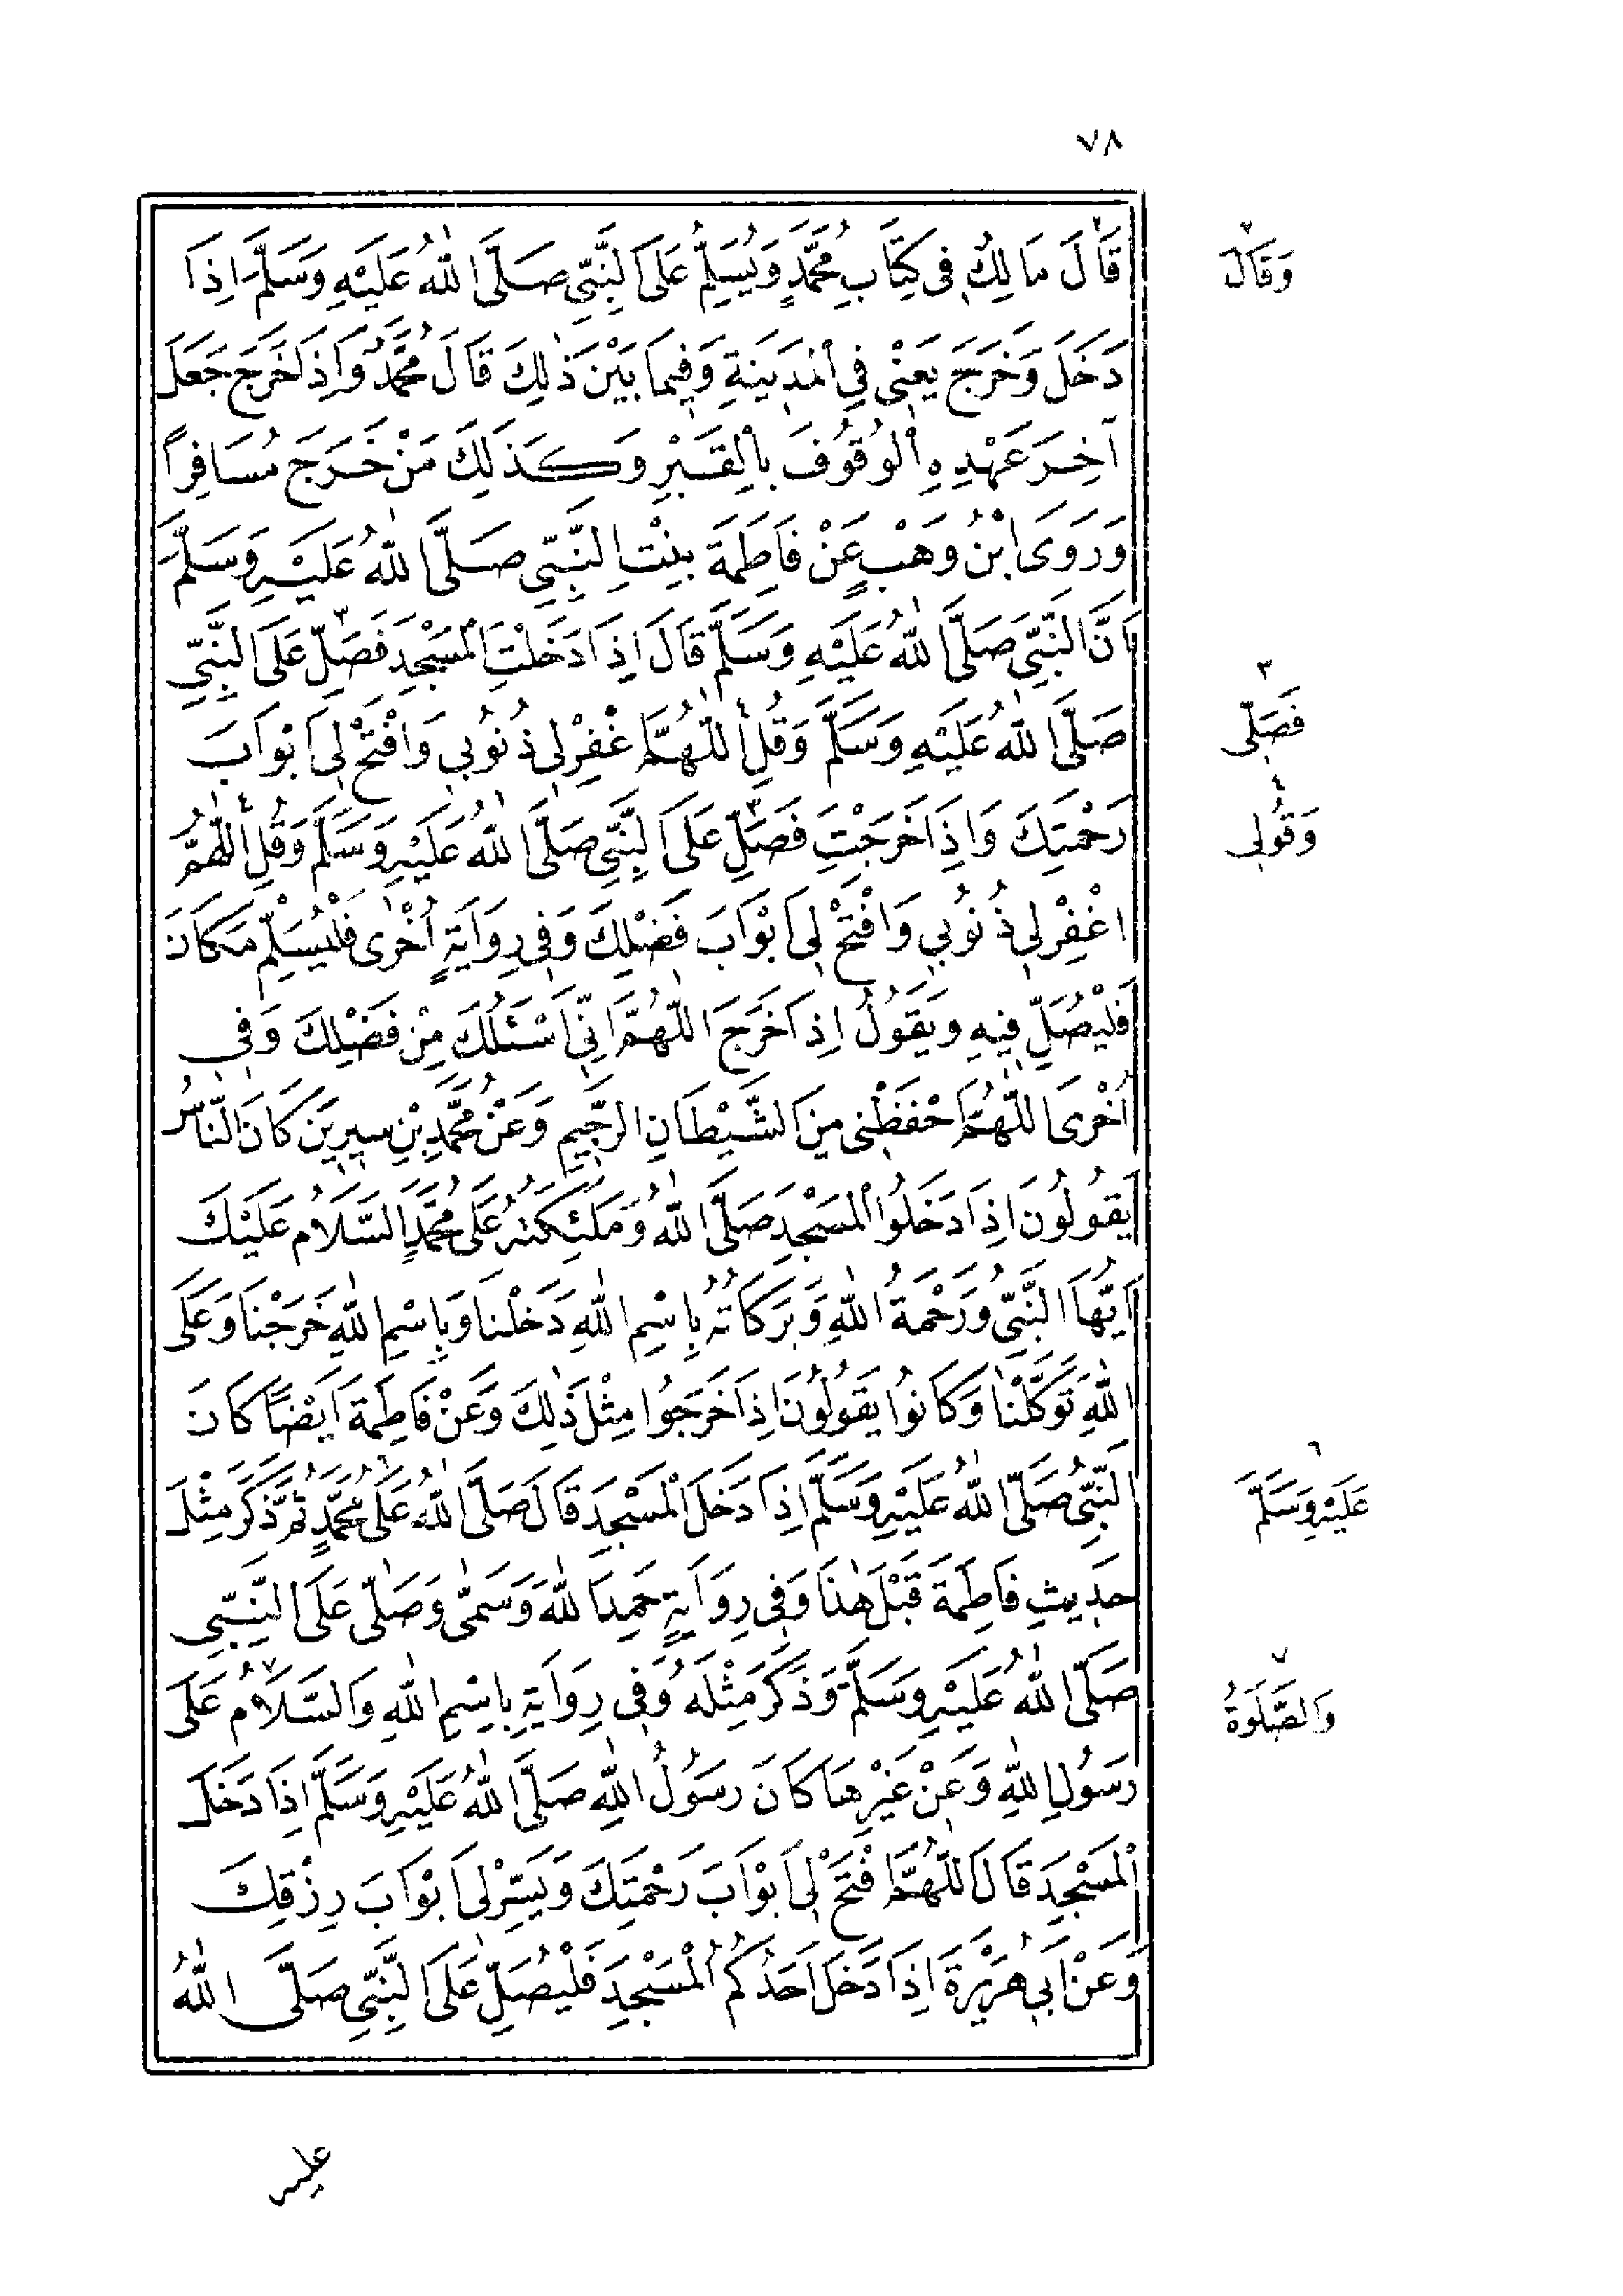 ٧٨
قَالَ مَالِكٌ فِى كِتَابِ مُحَمَّدٍ وَيُسَلِّمُ عَلَى النَّبِىِّ صَلَّى اللّٰهُ عَلَيْهِ وَسَلَّمَ اِذَا
دَخَلَ وَخَرَجَ يَعْنِى فِى الْمَدِينَةِ وَفِيمَا بَيْنَ ذٰلِكَ قَالَ مُحَمَّدٌ وَاِذَا خَرَجَ جَعَلَ
آخِرَ عَهْدِهِ الْوُقُوفَ بِالْقَبْرِ وَكَذَلِكَ مَنْ خَرَجَ مُسَافِراً
وَرَوَى ابْنُ وَهْبٍ عَنْ فَاطِمَةَ بِنْتِ النَّبِىِّ صَلَّى اللّٰهُ عَلَيْهِ وَسَلَّمَ
اَنَّ النَّبِىَّ صَلَّى اللّٰهُ عَلَيْهِ وَسَلَّمَ قَالَ اِذَا دَخَلْتِ الْمَسْجِدَ فَصَلِّ ٣ عَلَى النَّبِىِّ
صَلَّى اللّٰهُ عَلَيْهِ وَسَلَّمَ وَقُلِ ٤ اللّٰهُمَّ اغْفِرْلِى ذُنُوبِى وَافْتَحْ لِى اَبْوَابَ
رَحْمَتِكَ وَاِذَا خَرَجْتِ فَصَلِّ ٣ عَلَى النَّبِىِّ صَلَّى اللّٰهُ عَلَيْهِ وَسَلَّمَ وَقُلِ ٤ اللّٰهُمَّ
اغْفِرْلِى ذُنُوبِى وَافْتَحْ لِى اَبْوَابَ فَضْلِكَ وَفِى رِوَايَةٍ اُخْرٰى فَلْيُسَلِّمْ مَكَانَ
فَلْيُصَلِّ فِيهِ وَيَقُولُ اِذَا خَرَجَ اللّٰهُمَّ اِنِّى اَسْئَلُكَ مِنْ فَضْلِكَ وَفِى
اُخْرَى اللّٰهُمَّ احْفَظْنِى مِنَ الشَّيْطَانِ الرَّجِيمِ وَعَنْ مُحَمَّدِ بْنِ سِيرِينَ كَانَ النَّاسُ
يَقُولُونَ اِذَا دَخَلُوا الْمَسْجِدَ صَلَّى اللّٰهُ وَمَلٰئِكَتُهُ عَلَى مُحَمَّدٍ السَّلَامُ عَلَيْكَ
اَيُّهَا النَّبِىُّ وَرَحْمَةُ اللّٰهِ وَبَرَكَاتُهُ بِاسْمِ اللّٰهِ دَخَلْنَا وَبِاسْمِ اللّٰهِ خَرَجْنَا وَعَلَى
اللّٰهِ تَوَكَّلْنَا وَكَانُوا يَقُولُونَ اِذَا خَرَجُوا مِثْلَ ذٰلِكَ وَعَنْ فَاطِمَةَ اَيْضًا كَانَ
النَّبِىُّ صَلَّى اللّٰهُ عَلَيْهِ وَسَلَّمَ اِذَا دَخَلَ الْمَسْجِدَ قَالَ صَلَّى اللّٰهُ عَلَى مُحَمَّدٍ ٦ ثُمَّ ذَكَرَ مِثْلَ
حَدِيثِ فَاطِمَةَ قَبْلَ هٰذَا وَفِى رِوَايَةٍ حَمِدَ اللّٰهَ وَسَمّٰى وَصَلّٰى عَلَى النَّبِىِّ
صَلَّى اللّٰهُ عَلَيْهِ وَسَلَّمَ وَذَكَرَ مِثْلَهُ وَفِى رِوَايَةٍ بِاسْمِ اللّٰهِ وَالسَّلَامُ ٧ عَلَى
رَسُولِ اللّٰهِ وَعَنْ غَيْرِهَا كَانَ رَسُولُ اللّٰهِ صَلَّى اللّٰهُ عَلَيْهِ وَسَلَّمَ اِذَا دَخَلَ
الْمَسْجِدَ قَالَ اللّٰهُمَّ افْتَحْ لِى اَبْوَابَ رَحْمَتِكَ وَيَسِّرْ لِى اَبْوَابَ رِزْقِكَ
وَعَنْ اَبِى هُرَيْرَةَ اِذَا دَخَلَ اَحَدُكُمُ الْمَسْجِدَ فَلْيُصَلِّ عَلَى النَّبِىِّ صَلَّى اللّٰهُ
وَقَالَ
٣
فَصَلِّى
٤
وَقُولِى
٦
عَلَيْهِ وَسَلَّمَ
٧
وَالصَّلَوةُ
عليه